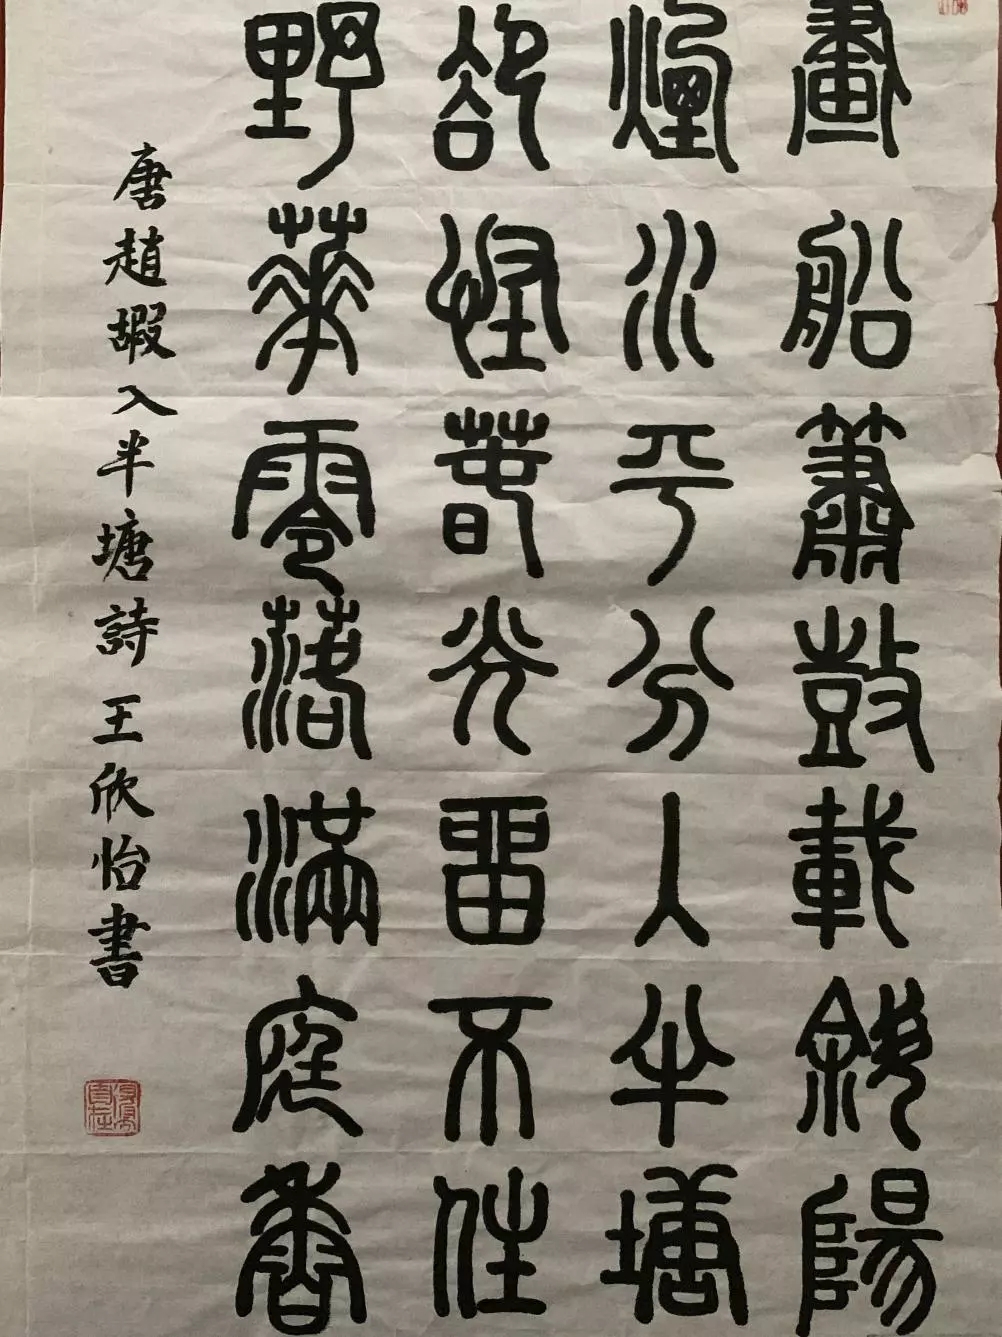 畫船簫鼓載斜陽
煙水平分入半塘
卻怪春光留不住
野華零落滿庭香
唐趙嘏入半塘詩 王欣怡書